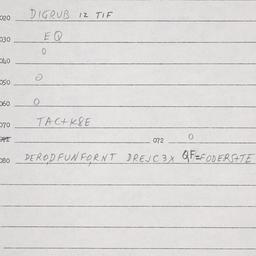 020 DIGRUB 12 TIF
030 EQ
040 0
050 0
060 0
070 TAC+K8E
071 072 0
080 DEROD,FUNFORNT DREJC3X QF=FODERSTE